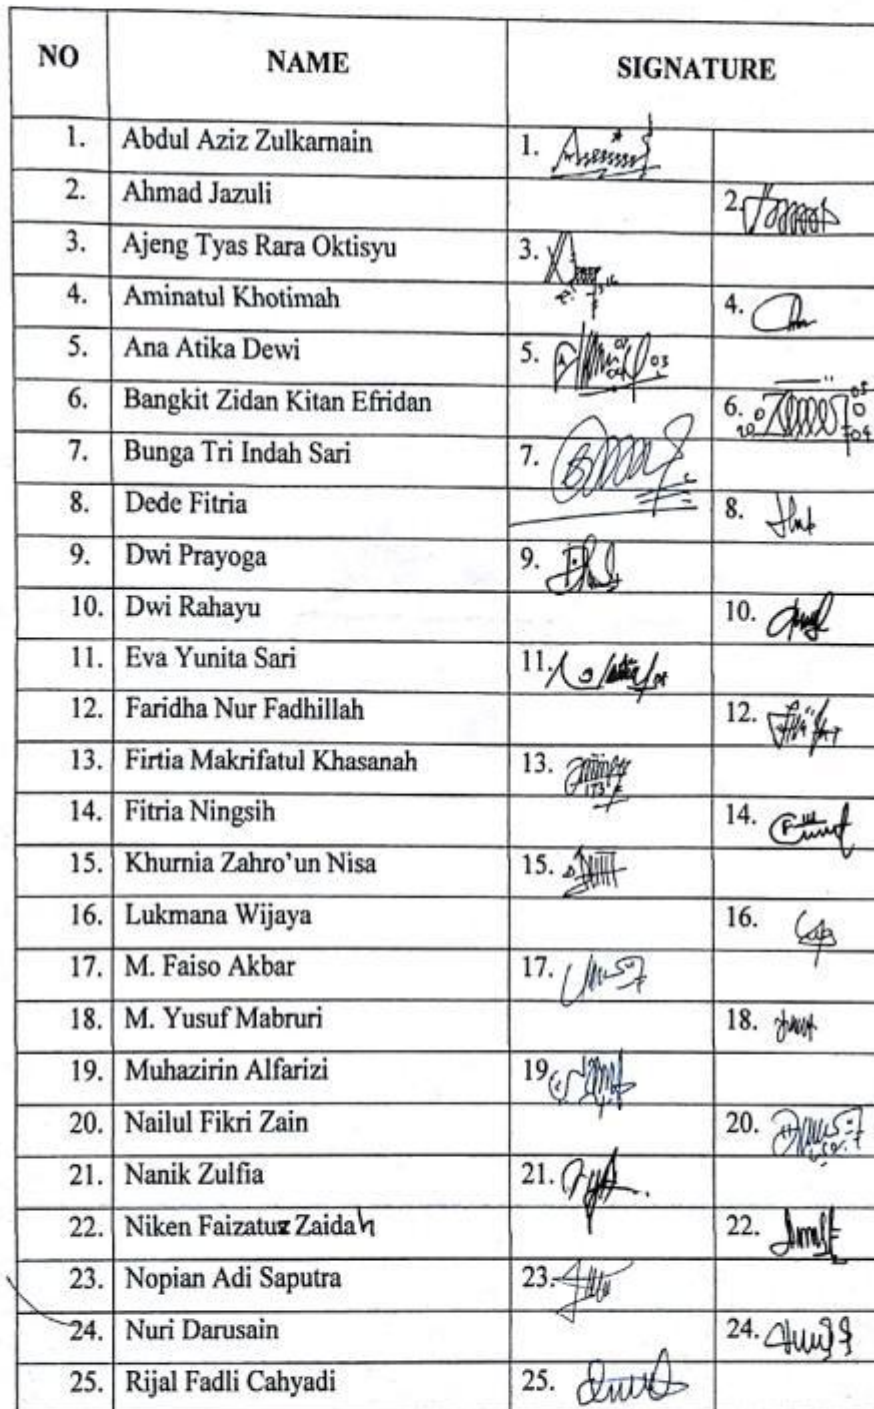 NO NAME SIGNATURE
1. Abdul Aziz Zulkarnain 1.
2. Ahmad Jazuli 2.
3. Ajeng Tyas Rara Oktisyu 3.
4. Aminatul Khotimah 4.
5. Ana Atika Dewi 5.
6. Bangkit Zidan Kitan Efridan 6.
7. Bunga Tri Indah Sari 7.
8. Dede Fitria 8.
9. Dwi Prayoga 9.
10. Dwi Rahayu 10.
11. Eva Yunita Sari 11.
12. Faridha Nur Fadhillah 12.
13. Firtia Makrifatul Khasanah 13.
14. Fitria Ningsih 14.
15. Khurnia Zahro'un Nisa 15.
16. Lukmana Wijaya 16.
17. M. Faiso Akbar 17.
18. M. Yusuf Mabruri 18.
19. Muhazirin Alfarizi 19.
20. Nailul Fikri Zain 20.
21. Nanik Zulfia 21.
22. Niken Faizatuz Zaidah 22.
23. Nopian Adi Saputra 23.
24. Nuri Darusain 24.
25. Rijal Fadli Cahyadi 25.